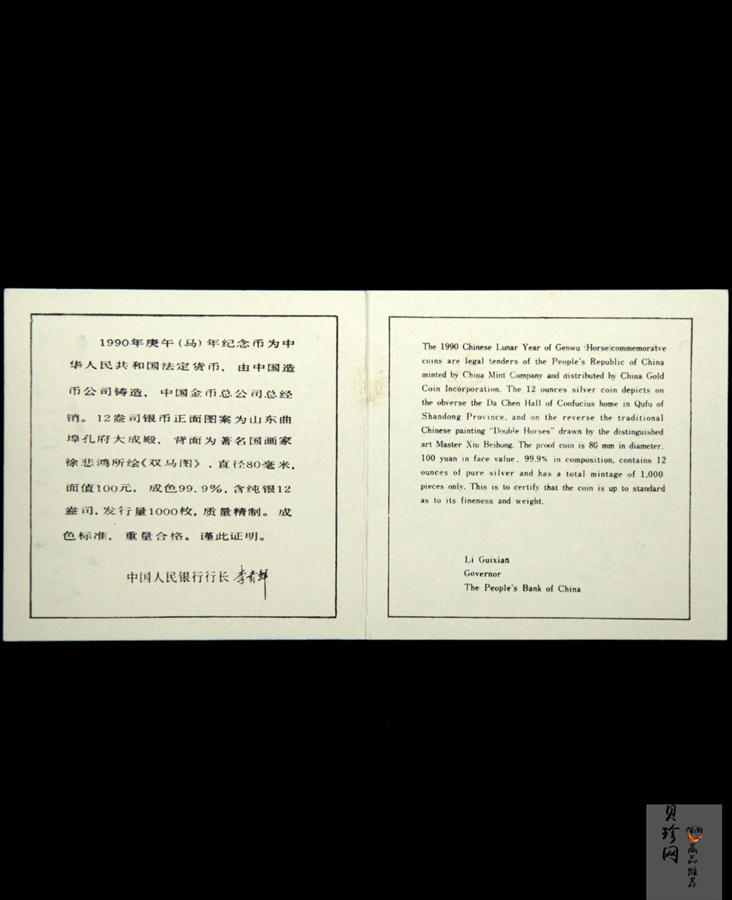 1990年庚午(马)年纪念币为中
华人民共和国法定货币，由中国造
币公司铸造，中国金币总公司总经
销。12盎司银币正面图案为山东曲
埠孔府大成殿，背面为著名国画家
徐悲鸿所绘《双马图》，直径80毫米，
面值100元，成色99.9%，含纯银12
盎司，发行量1000枚，质量精制。成
色标准，重量合格。谨此证明。
中国人民银行行长 李贵鲜
The 1990 Chinese Lunar Year of Genwu (Horse)commemoratve
coins are legal tenders of the People's Republic of China
minted by China Mint Company and distributed by China Gold
Coin Incorporation. The 12 ounces silver coin depicts on
the obverse the Da Chen Hall of Confucius home in Qufu of
Shandong Province, and on the reverse the traditional
Chinese painting "Double Horses" drawn by the distinguished
art Master Xiu Beihong. The proof coin is 80 mm in diameter,
100 yuan in face value, 99.9% in composition, contains 12
ounces of pure silver and has a total mintage of 1,000
pieces only. This is to certify that the coin is up to standard
as to its fineness and weight.
Li Guixian
Governor
The People's Bank of China
贝珍网
藏品推荐